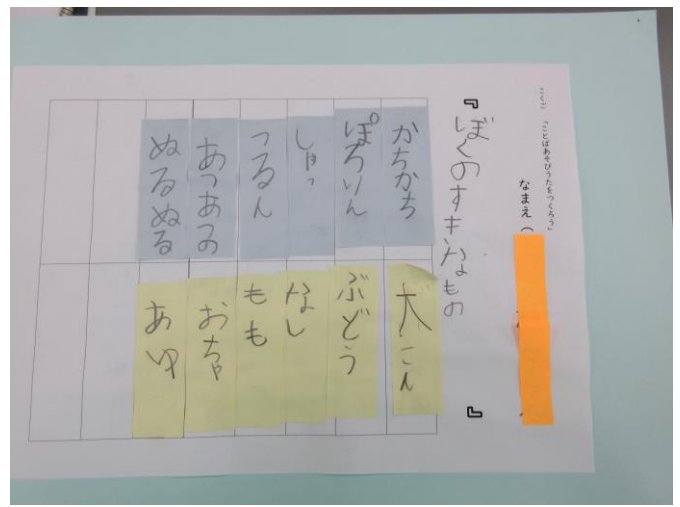 こくご 「ことばあそびうたをつくろう」
なまえ（
『ぼくのすきなもの』
かちかち 大こん
ぽろりん ぶどう
しゃっ なし
つるん もも
あつあつの おちゃ
ぬるぬる あゆ